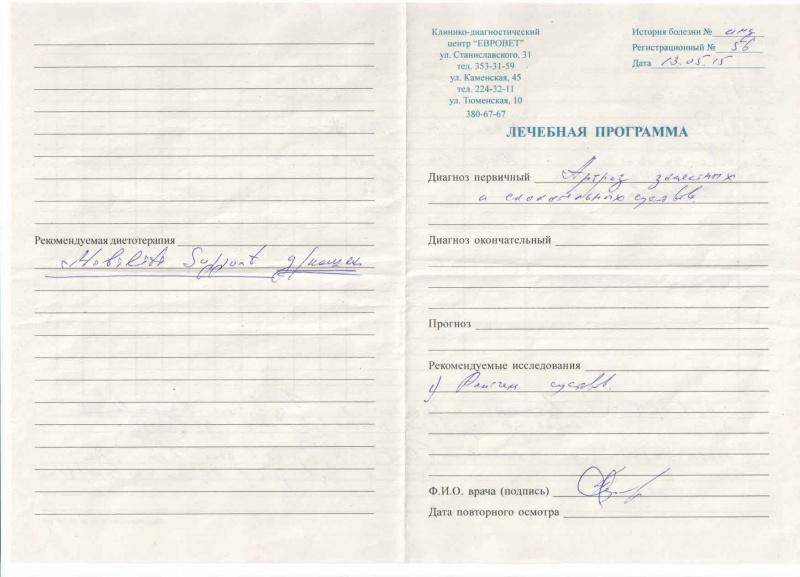 Рекомендуемая диетотерапия
Mobiliti Support д/кошек
Клинико-диагностический
центр "ЕВРОВЕТ"
ул. Станиславского, 31
тел. 353-31-59
ул. Каменская, 45
тел. 224-32-11
ул. Тюменская, 10
380-67-67
История болезни №
Регистрационный № 56
Дата 13.05.15
ЛЕЧЕБНАЯ ПРОГРАММА
Диагноз первичный Артроз запястных
и скакательных суставов
Диагноз окончательный
Прогноз
Рекомендуемые исследования
1) Рентген. суставов
Ф.И.О. врача (подпись)
Дата повторного осмотра